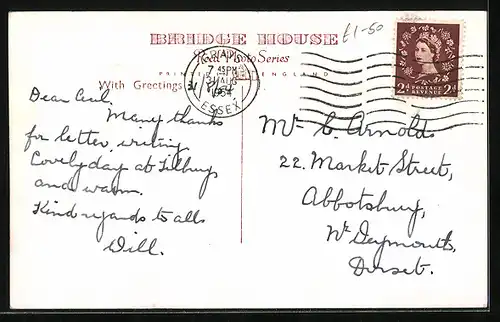 BRIDGE HOUSE
Real Photo Series
PRINTED IN ENGLAND
£1-50
With Greetings
7 45PM
31 AUG
1954
ESSEX
POSTAGE
2D REVENUE 2D
Dear Cecil.
Many thanks
for letter, writing
Lovely day at Tilbury
and warm.
Kind regards to all
Will.
Mr C. Arnold.
22. Market Street,
Abbotsbury,
Nr Weymouth,
Dorset.